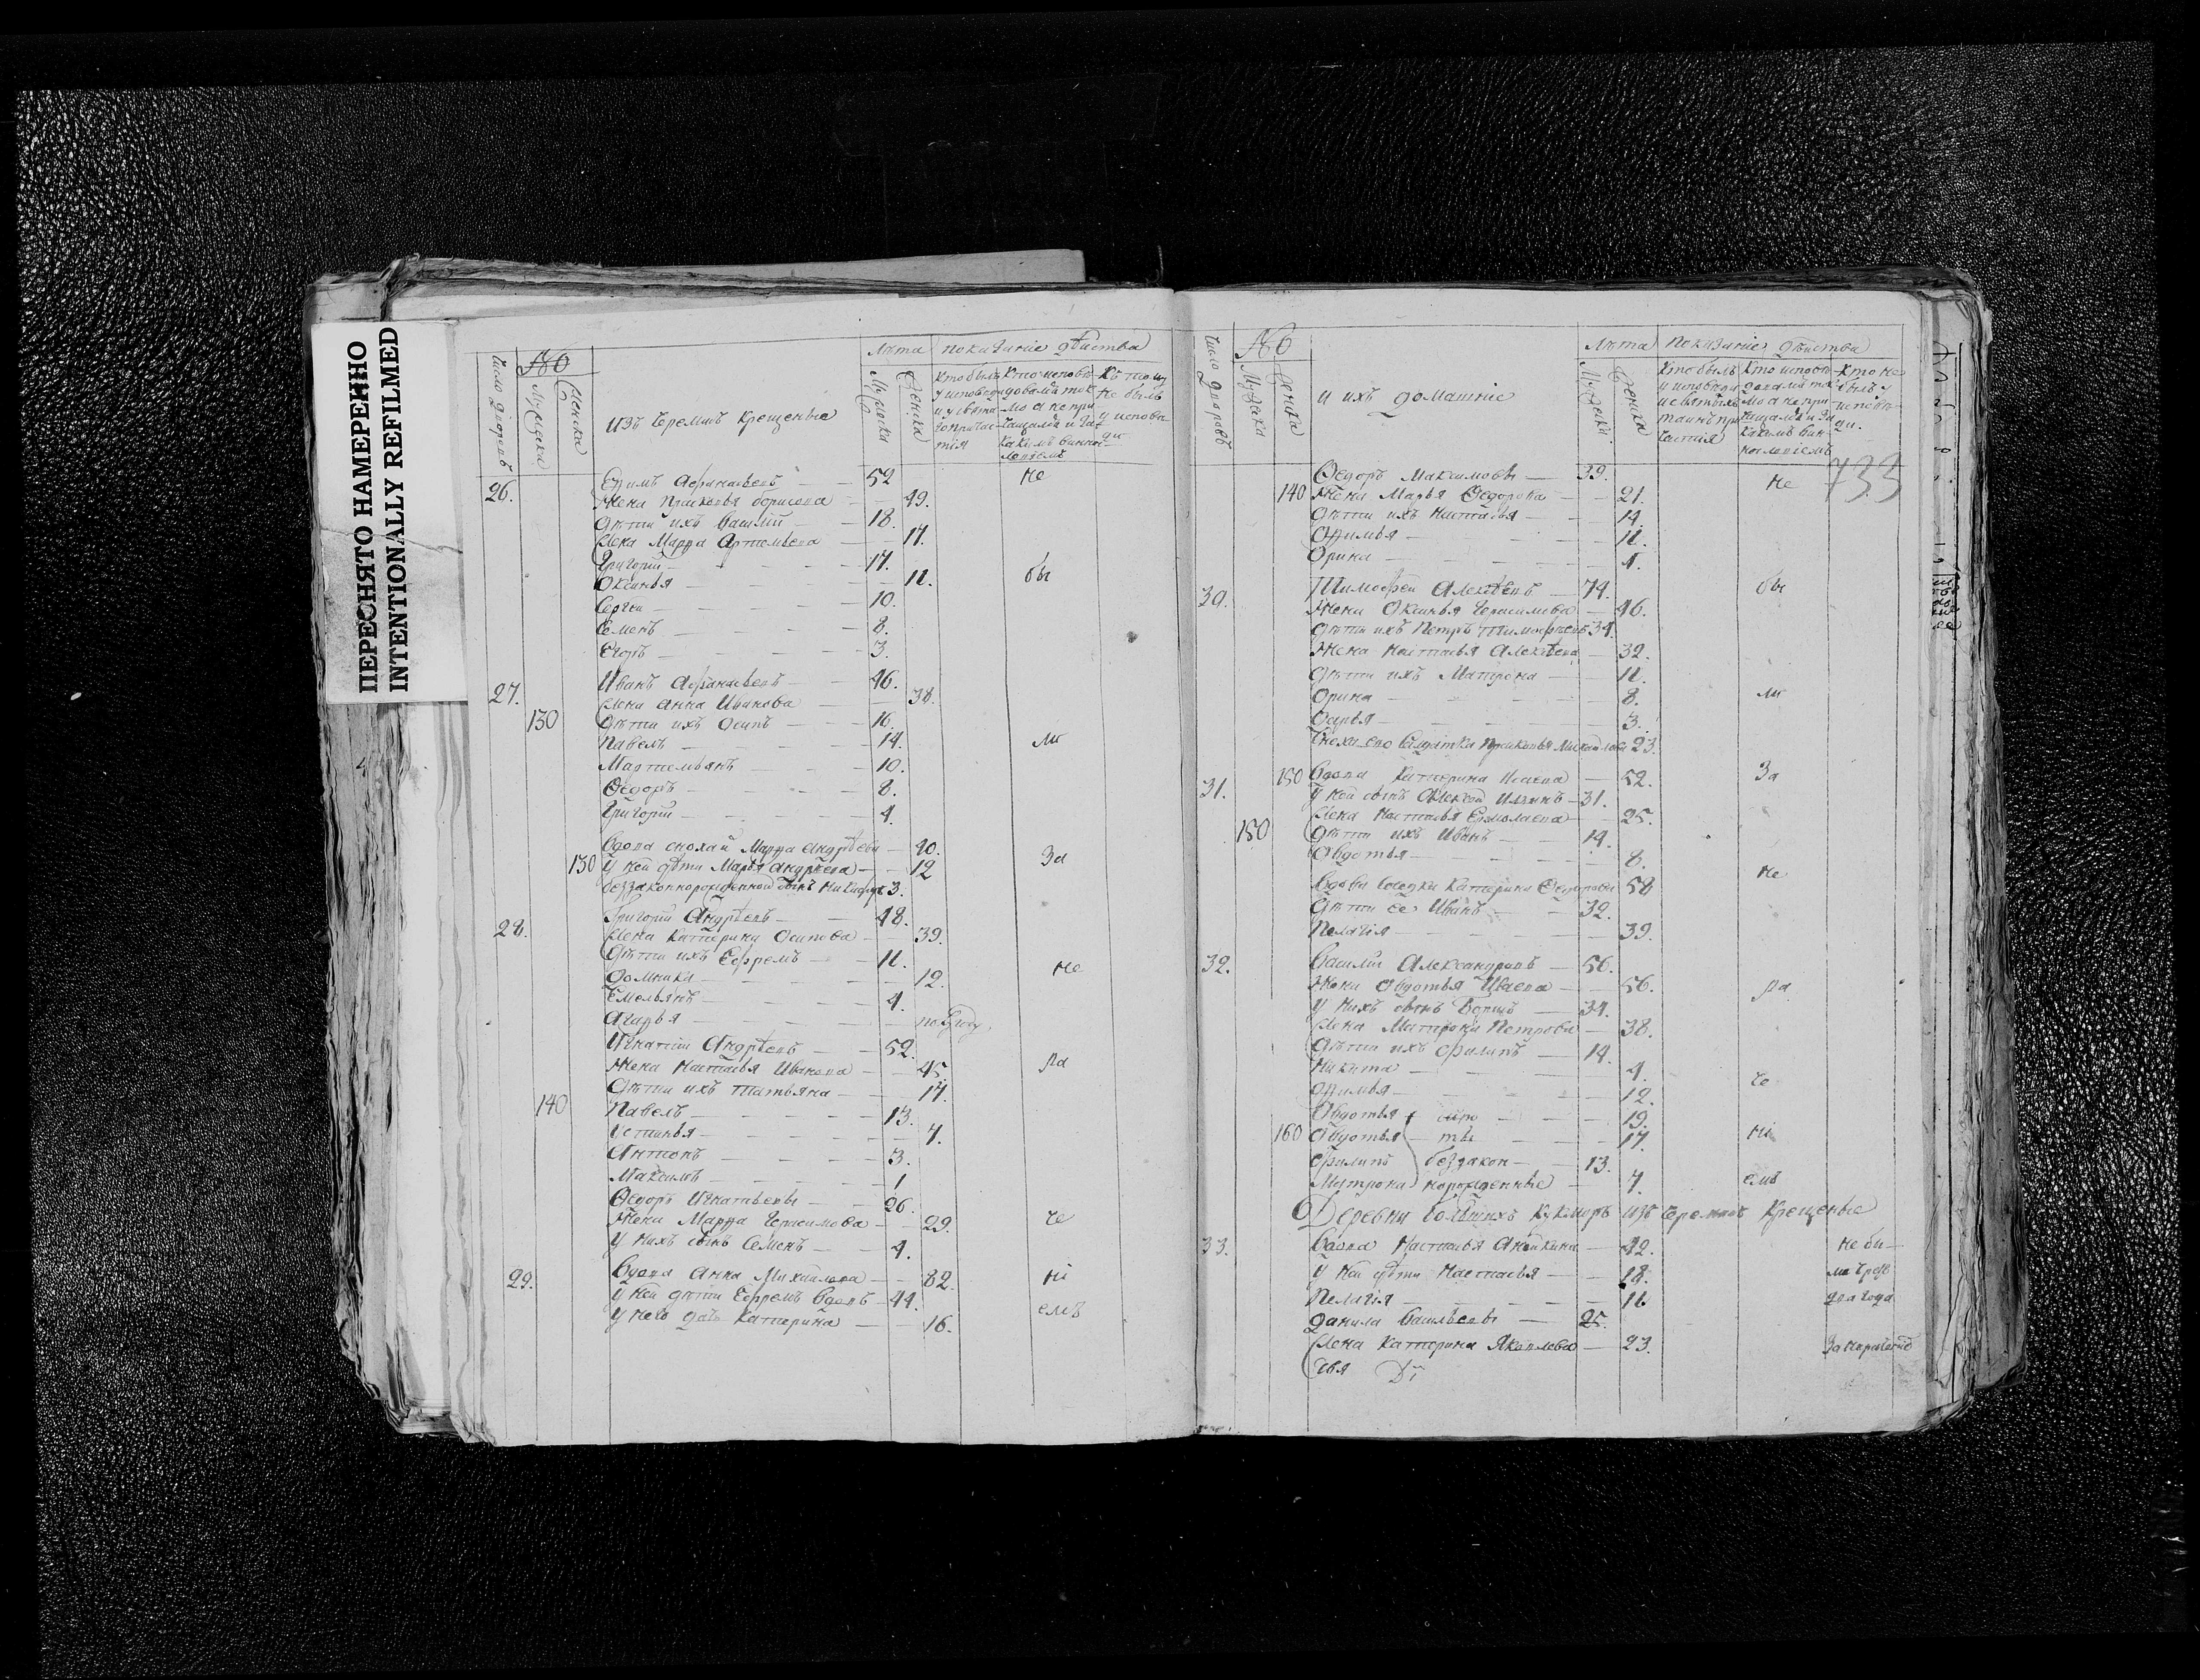 ПЕРЕСНЯТО НАМЕРЕННО
INTENTIONALLY REFILMED
Число дворовъ
№
Мужска
Женска
изъ Черемисъ Крещеные
Лѣта
Мужеска
Женска
показаніе дѣиства
Кто былъ у исповѣди и у святаго причастия
Кто исповѣдовался токмо а не причащался и за какимъ винословіемъ
Кто не былъ у исповѣди
26. Ефимъ Афанасьевъ 52 Не
Жена Прасковья борисова 49.
Дѣти ихъ Василiй 18.
Жена Марфа Артемьева 17.
Григорiй 17.
Оксинья 11. бы
Сергеи 10.
Семенъ 8.
Егоръ 3.
27. Иванъ Афанасьевъ 46.
Жена Анна Иванова 38.
130 Дѣти ихъ Осипъ 16.
Павелъ 14. ли
Мартемьянъ 10.
Ѳедоръ 8.
Григорiй 4.
Вдова снохай Марфа Андрѣева 40.
130 У ней дѣти Марья Андрѣева 12 За
беззаконнорожденной сынъ Никифоръ 3.
28. Григорiй Андрѣевъ 48.
Жена Катерина Осипова 39.
Дѣти ихъ Ефремъ 11.
Домника 12. Не
Емельянъ 4.
Агафья полугоду
Игнатiй Андрѣевъ 52.
Жена Настасья Иванова 45 ра
Дѣти ихъ Татьяна 17.
140 Павелъ 13.
Устинья 7.
Антонъ 3.
Максимъ 1
Ѳедоръ Игнатьевъ 26.
Жена Марфа Герасимова 29. че
У нихъ сынъ Семенъ 4.
29. Вдова Анна Михаилова 82. нi
У ней дѣти Ефремъ вдовъ 44. емъ
У него дочь Катерина 16.
Число дворовъ
№
Мужеска
Женска
и ихъ домашнiе
Лѣта
Мужески
Женска
показанiе дѣиства
Кто былъ у исповѣди и святыхъ таинъ причастiя
Кто исповѣдовался токмо а не причащался и за какимъ винословiемъ
Кто не былъ у исповѣди.
733
Ѳедоръ Максимовъ 39. Не
140 Жена Марья Ѳедорова 21.
Дѣти ихъ Настасья 14.
Офимья 11.
Орина 1.
30. Тимофеи Алексѣевъ 74. бы
Жена Оксинья Герасимова 46.
Дѣти ихъ Петръ Тимофеевъ 34.
Жена Настасья Алексѣева 32.
Дѣти ихъ Матрона 11.
Орина 8. ли
Дарья 3.
Сноха ево Салдатка Прасковья Михайлова 23.
31. 150 Вдова Катерина Исаева 52. За
У ней сынъ Алексей Ильинъ 31.
Жена Настасья Ермолаева 25.
150 Дѣти ихъ Иванъ 14.
Овдотья 8.
Вдова Солдатка Катерина Ѳедорова 58 Не
Дѣти ее Иванъ 32.
Пелагiя 39.
32. Василiй Александровъ 56.
Жена Овдотья Иваева 56. ра
У нихъ сынъ Борисъ 34.
Жена Матрона Петрова 38.
Дѣти ихъ Филипъ 14.
Никита 4. че
Офимья 12.
Овдотья сиро 19.
160 Овдотья ты 17. нi
Филипъ беззакон 13.
Матрона норожденные 7. емъ
Деревни большихъ Кукморъ изъ Черемисъ Крещеные
33. Вдова Настасья Аникина 42. Не бы
У ней дѣти Настасья 18. ли чрезъ
Пелагiя 11 два года
Данила Васильевъ 25.
Жена Катерина Яковлева 23. За нерачениемъ
Сiя